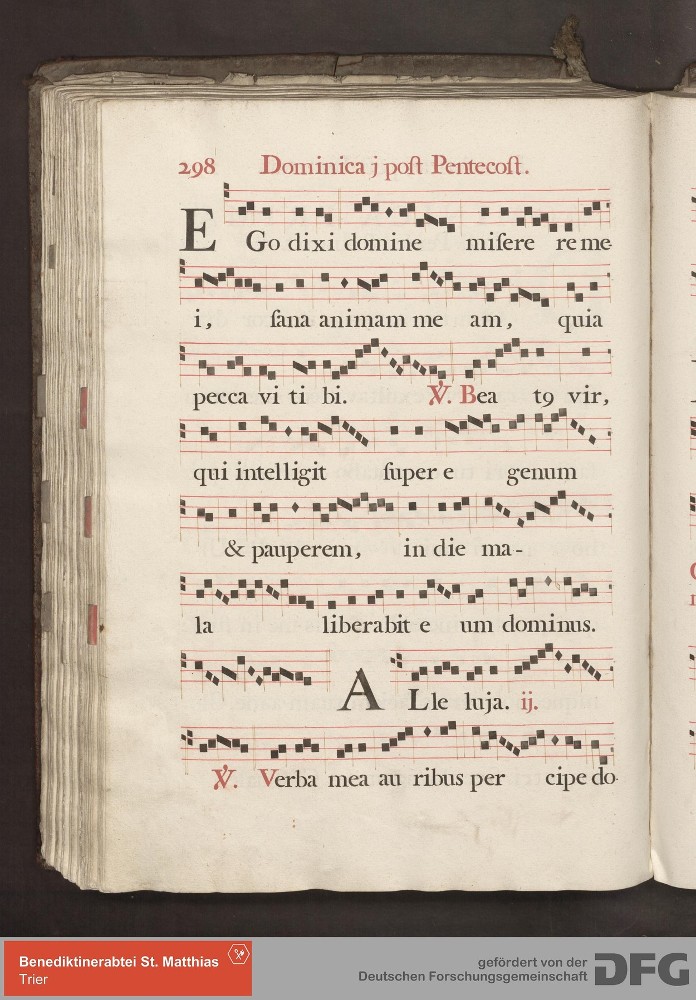 298 Dominica j poſt Pentecoſt.
EGo dixi domine miſere re me
i, ſana animam me am, quia
pecca vi ti bi. ℣. Bea tꝯ vir,
qui intelligit ſuper e genum
& pauperem, in die ma-
la liberabit e um dominus.
ALle luja. ij.
℣. Verba mea au ribus per cipe do-
Benediktinerabtei St. Matthias
Trier
gefördert von der
Deutschen Forschungsgemeinschaft
DFG